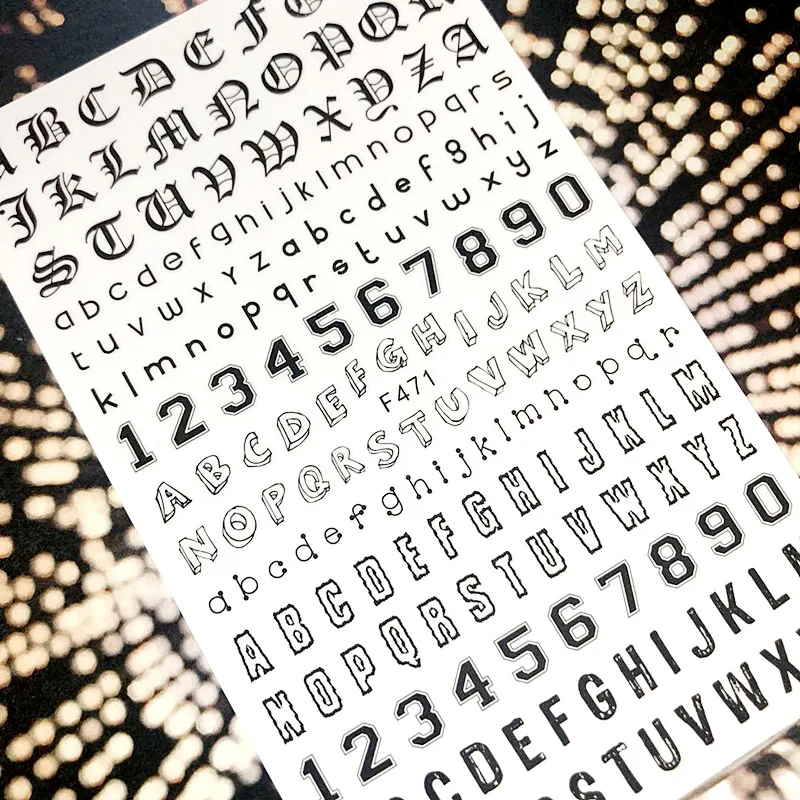 A B C D E F G
J K L M N O P Q R
S T U V W X Y Z A
a b c d e f g h i j k l m n o p q r s
t u v w x y z a b c d e f g h i j
k l m n o p q r s t u v w x y z
1 2 3 4 5 6 7 8 9 0
A B C D E F G H I J K L M
F471
N O P Q R S T U V W X Y Z
a b c d e f g h i j k l m n o p q r
A B C D E F G H I J K L M
N O P Q R S T U V W X Y Z
1 2 3 4 5 6 7 8 9 0
C D E F G H I J K L M
S T U V W X